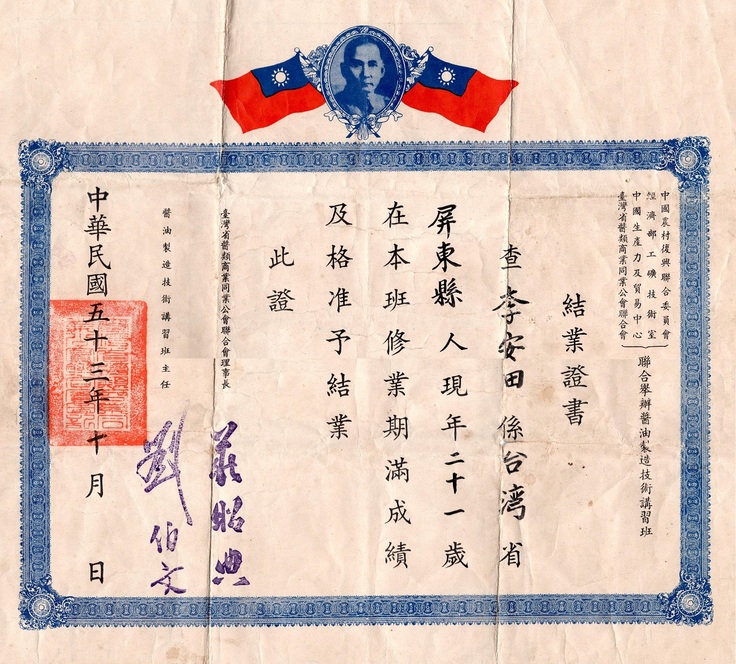 中國農村復興聯合委員會
經濟部工礦技術室
中國生產力及貿易中心
臺灣省醬類商業同業公會聯合會
聯合舉辦醬油製造技術講習班
結業證書
查李安田係台湾省
屏東縣人現年二十一歲
在本班修業期滿成績
及格准予結業
此證
臺灣省醬類商業同業公會聯合會理事長
莊昭典
醬油製造技術講習班主任
劉伯文
中華民國五十三年十月 日